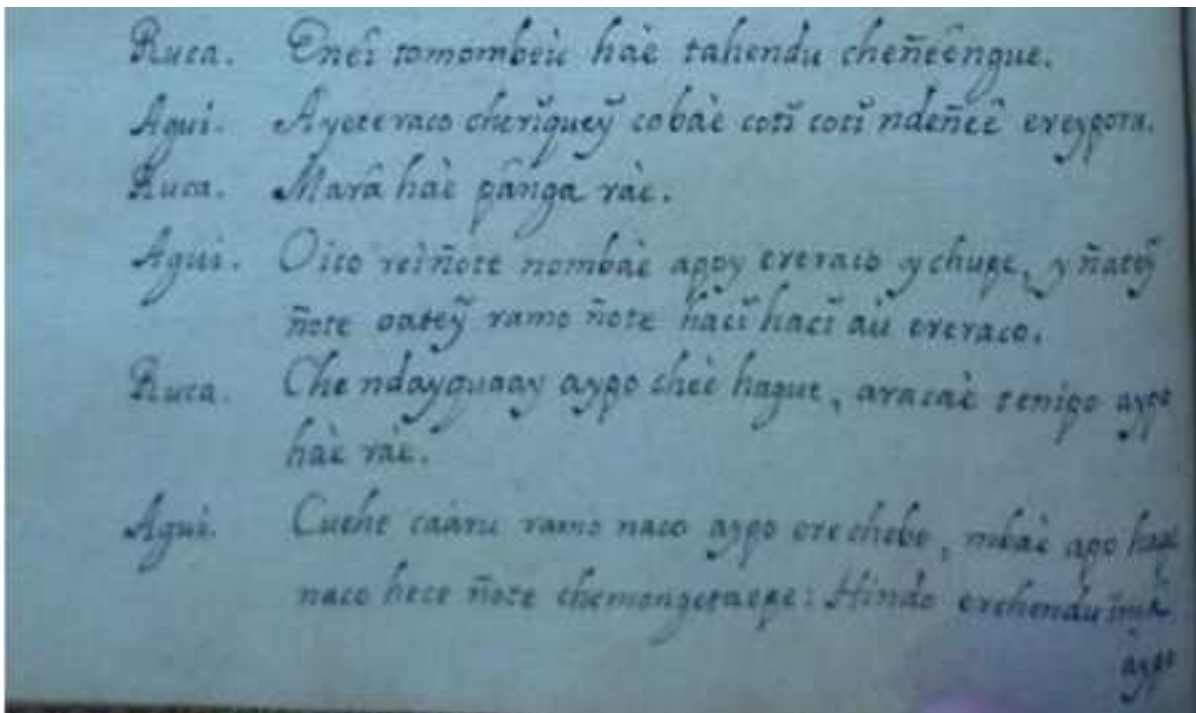 Ruca. Eneî tomombeù haè tahendu cheñeêngue.
Agui. Ayete raco cherỹqueỹ cobaè cotĭ cotĭ ndeñeê ereypota.
Ruca. Marâ haè pânga ràe.
Agui. Oico reì ñote nombaè apoy ereraco ychupe, y ñateỹ
ñote oateỹ ramo ñote hacĭ hacĭ aù ereraco.
Ruca. Che ndayguaay aypo cheè hague, aracaè tenipo aypo
haè ràe.
Agui. Cuehe caàru ramo naco aypo ere chebe, mbaè apo hape
naco hece ñote chemongetaepe: Hindo erehendu
aypo